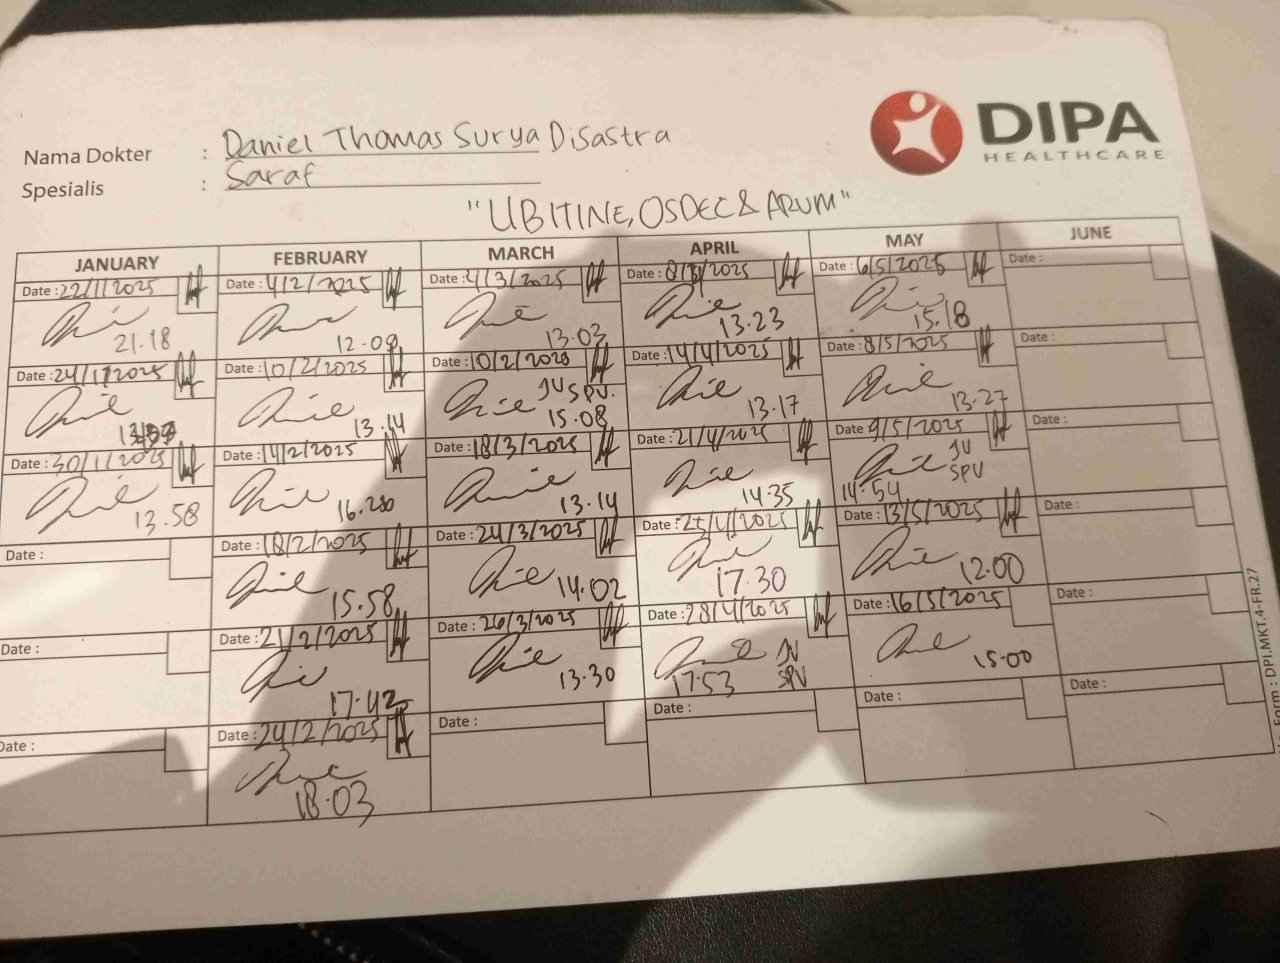 DIPA
HEALTHCARE
Nama Dokter : Daniel Thomas Surya Disastra
Spesialis : Saraf
"UBITINE, OSDEC & ARUM"
JANUARY FEBRUARY MARCH APRIL MAY JUNE
Date : 22/1/2025 Date : 4/2/2025 Date : 4/3/2025 Date : 8/4/2025 Date : 6/5/2025 Date :
21.18 12.09 13.03 13.23 15.18
Date : 24/1/2025 Date : 10/2/2025 Date : 10/2/2025 Date : 14/4/2025 Date : 8/5/2025 Date :
13.14 JV SPV. 15.08 13.17 13.27
Date : 30/1/2025 Date : 14/2/2025 Date : 18/3/2025 Date : 21/4/2025 Date : 9/5/2025 Date :
13.58 16.20 13.14 14.35 14.54 JV SPV
Date : Date : 18/2/2025 Date : 24/3/2025 Date : 25/4/2025 Date : 13/5/2025 Date :
15.58 14.02 17.30 12.00
Date : Date : 21/2/2025 Date : 26/3/2025 Date : 28/4/2025 Date : 16/5/2025 Date :
17.42 13.30 17.53 JV SPV 15.00
Date : Date : 24/2/2025 Date : Date : Date : Date :
18.03
Form : DPI.MKT.4-FR.27